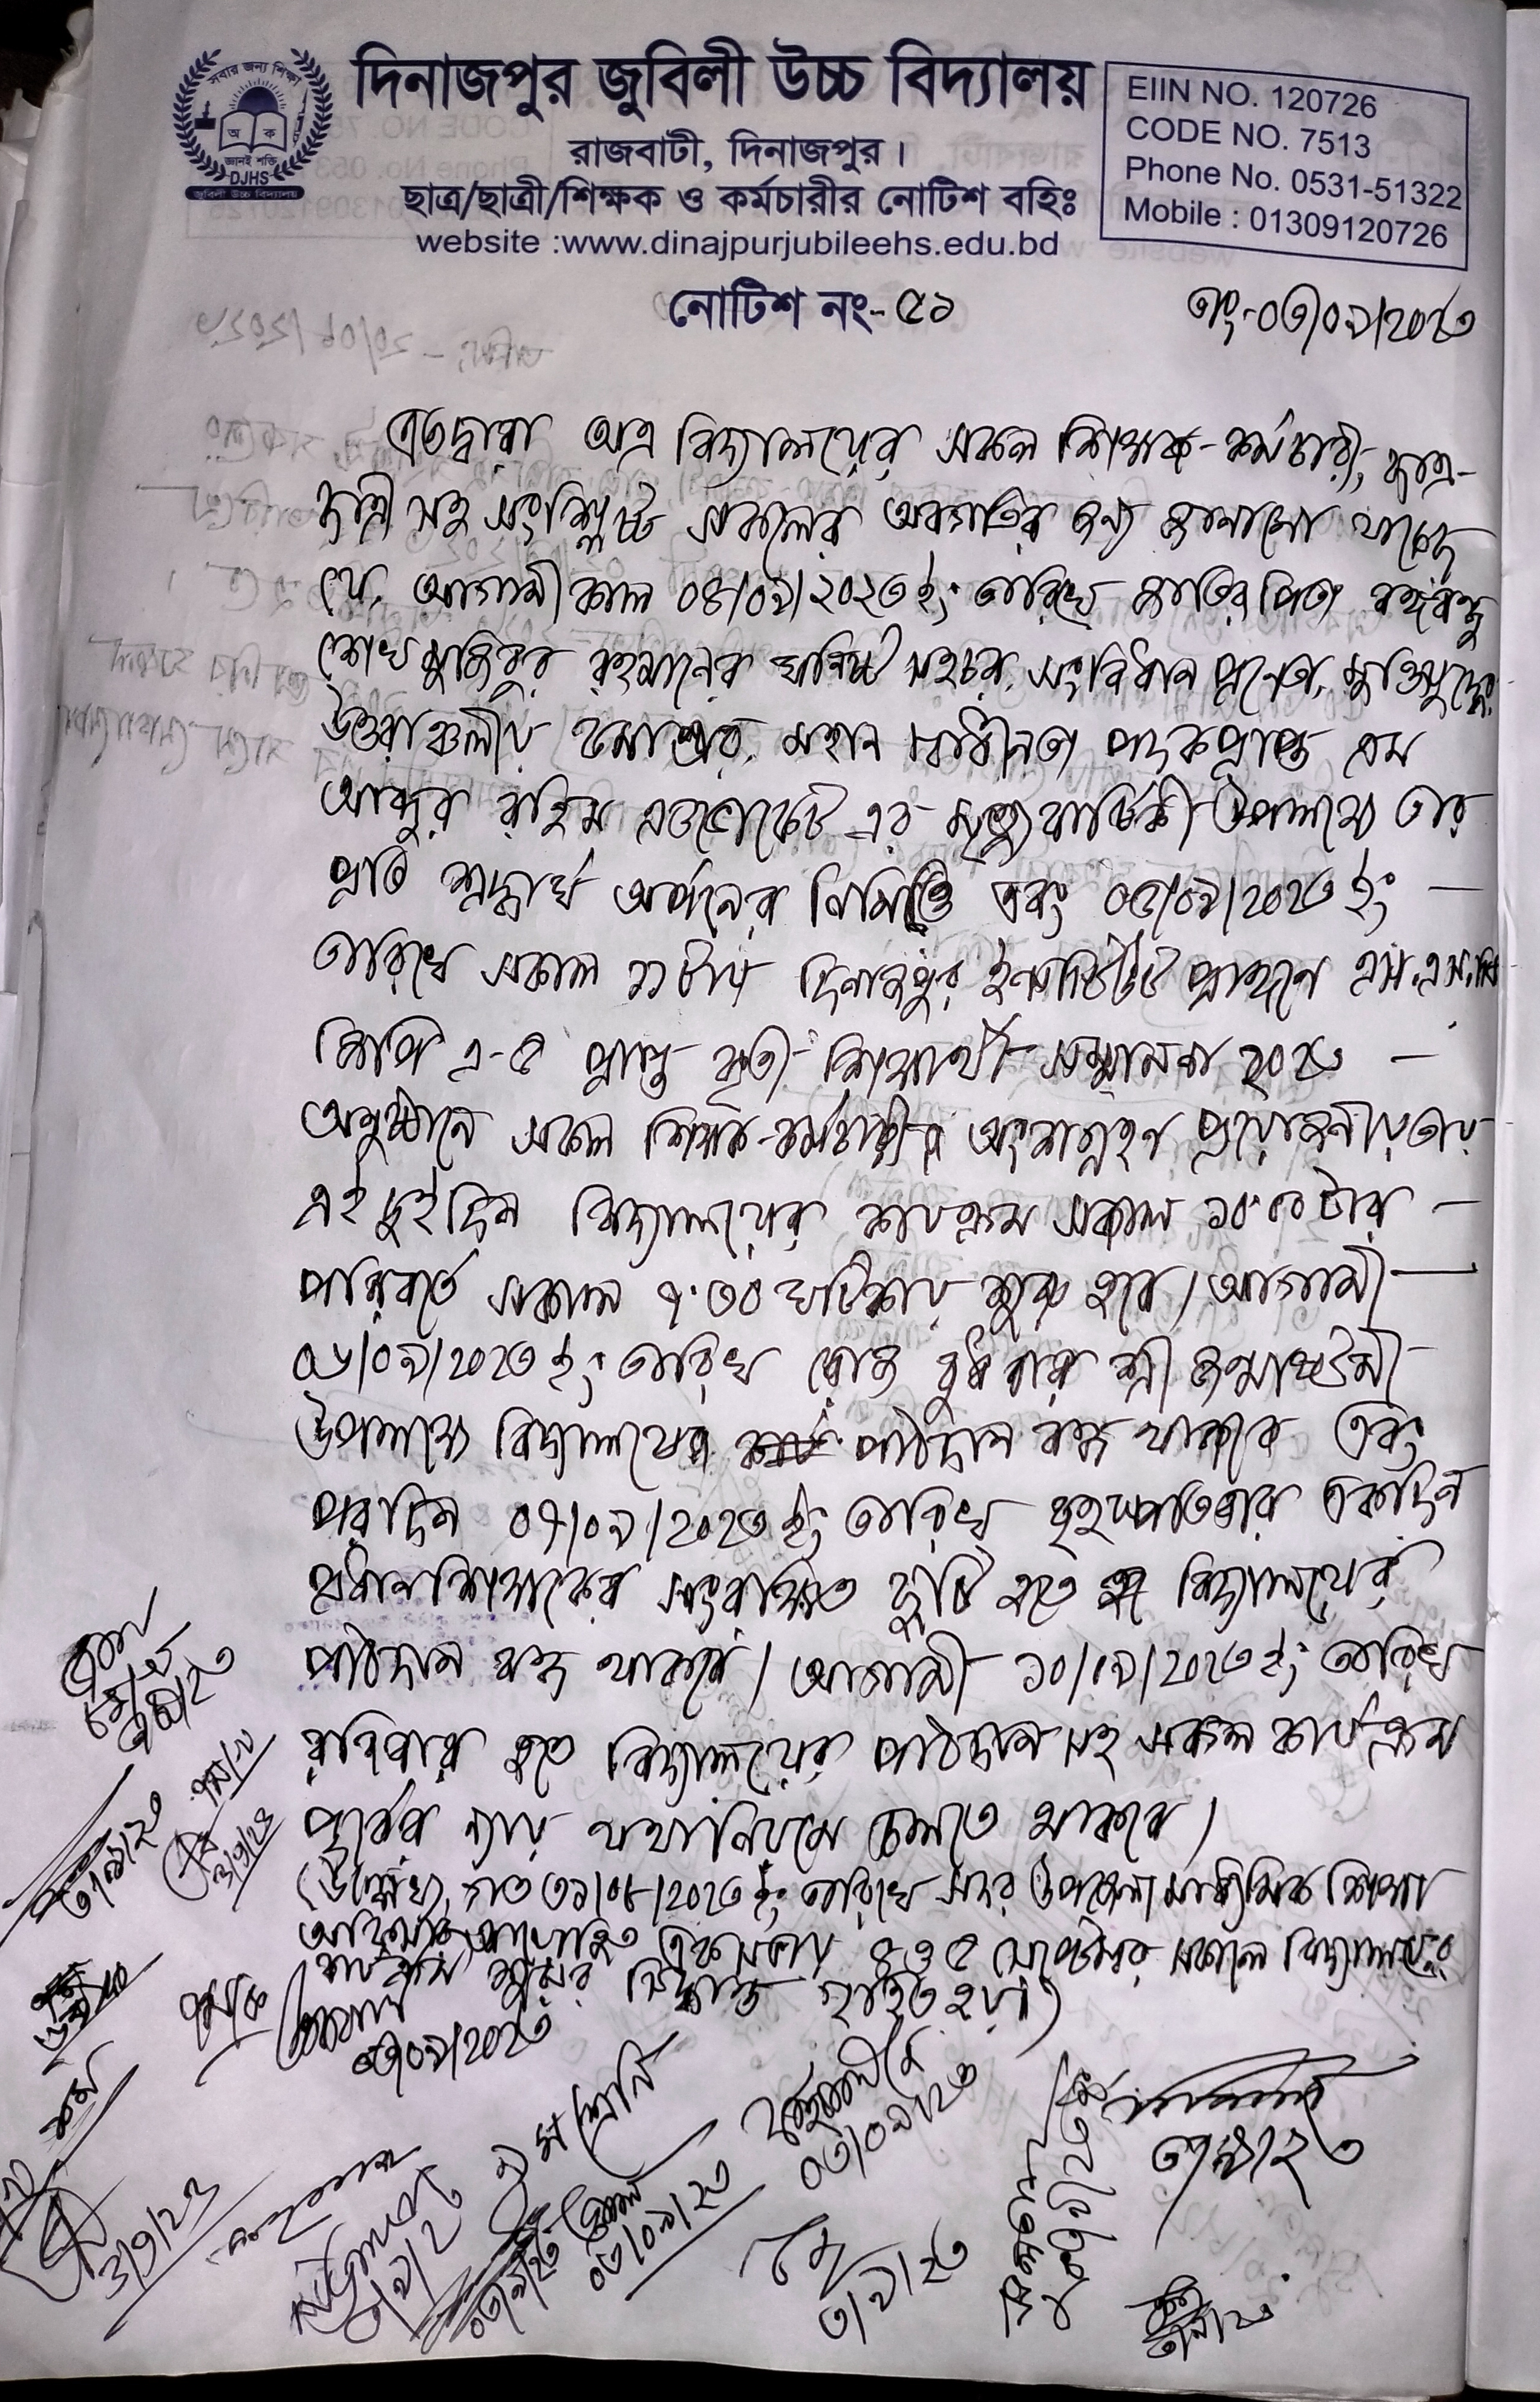 সবার জন্য শিক্ষা
অ ক
জ্ঞানই শক্তি
DJHS
জুবিলী উচ্চ বিদ্যালয়
দিনাজপুর জুবিলী উচ্চ বিদ্যালয়
রাজবাটী, দিনাজপুর।
ছাত্র/ছাত্রী/শিক্ষক ও কর্মচারীর নোটিশ বহিঃ
website :www.dinajpurjubileehs.edu.bd
EIIN NO. 120726
CODE NO. 7513
Phone No. 0531-51322
Mobile : 01309120726
নোটিশ নং- ৫১
তাং-০৩/০৯/২০২৩
এতদ্বারা অত্র বিদ্যালয়ের সকল শিক্ষক-কর্মচারী, ছাত্র-
ছাত্রী সহ সংশ্লিষ্ট সকলের অবগতির জন্য জানানো যাচ্ছে
যে, আগামীকাল ০৪/০৯/২০২৩ইং তারিখে জাতির পিতা বঙ্গবন্ধু
শেখ মুজিবুর রহমানের ঘনিষ্ট সহচর, সংবিধান প্রনেতা, মুক্তিযুদ্ধের
উত্তরাঞ্চলীয় মহান স্বাধীনতা পদকপ্রাপ্ত এম
আব্দুর রহিম এডভোকেট এর মৃত্যুবার্ষিকী উপলক্ষ্যে তার
প্রতি শ্রদ্ধার্ঘ অর্পনের নিমিত্তে এবং ০৫/০৯/২০২৩ ইং —
তারিখে সকাল ১১টায় দিনাজপুর ইন্সটিটিউট প্রাঙ্গনে এস.এস.সি
জিপি এ-৫ প্রাপ্ত কৃতী শিক্ষার্থী সম্মাননা ২০২৩ —
অনুষ্ঠানে সকল শিক্ষক-কর্মচারীর অংশগ্রহণ প্রয়োজনীয়তায়
এই দুইদিন বিদ্যালয়ের কার্যক্রম সকাল ১০.০০ টার —
পরিবর্তে সকাল ৭.৩০ ঘটিকায় শুরু হবে। আগামী —
০৬/০৯/২০২৩ ইং তারিখ রোজ বুধবার শ্রী জন্মাষ্টমী
উপলক্ষ্যে বিদ্যালয়ের পাঠদান বন্ধ থাকবে এবং
পরদিন ০৭/০৯/২০২৩ ইং তারিখ বৃহস্পতিবার একদিন
প্রধানশিক্ষকের সংরক্ষিত ছুটি হতে বিদ্যালয়ের
পাঠদান বন্ধ থাকবে। আগামী ১০/০৯/২০২৩ ইং তারিখ
রবিবার হতে বিদ্যালয়ের পাঠদান সহ সকল কার্যক্রম
পূর্বের ন্যায় যথানিয়মে চলতে থাকবে।
(উল্লেখ্য, গত ৩১/০৮/২০২৩ ইং তারিখে সদর উপজেলা মাধ্যমিক শিক্ষা
অফিসার আয়োজিত এক সভায় ৪ ও ৫ সেপ্টেম্বর সকালে বিদ্যালয়ের
কার্যক্রম শুরুর সিদ্ধান্ত গৃহীত হয়।)
০৩/০৯/২০২৩
০৩/০৯/২৩
০৩/০৯/২৩
৩/৯/২৩